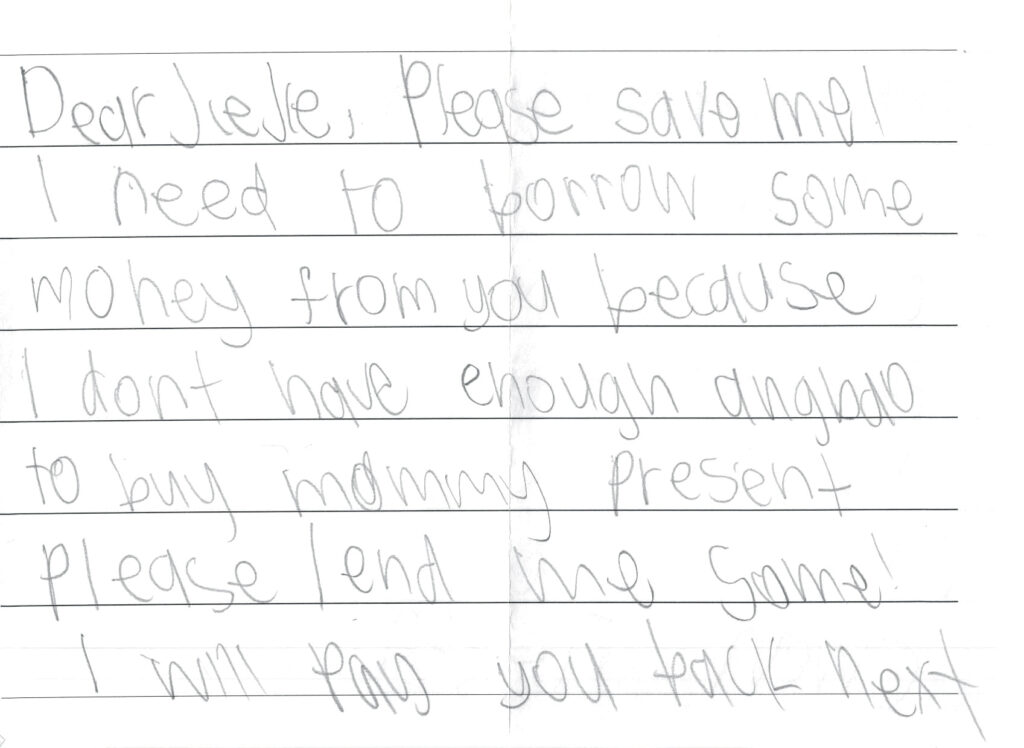 Dear JieJie, Please save me!
I need to borrow some
money from you because
I dont have enough angbao
to buy mommy present
please lend me some!
I will pay you back next